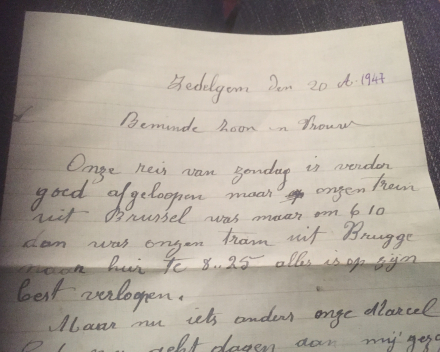 Zedelgem den 20 A. 1947
Beminde Zoon en Vrouw
Onze reis van zondag is verder
goed afgeloopen maar onzen trein
uit Brussel was maar om 6 10
dan was onzen tram uit Brugge
naar hier te 8..25 alles is op zijn
best verloopen.
Maar nu iets anders onze Marcel
acht dagen aan mij